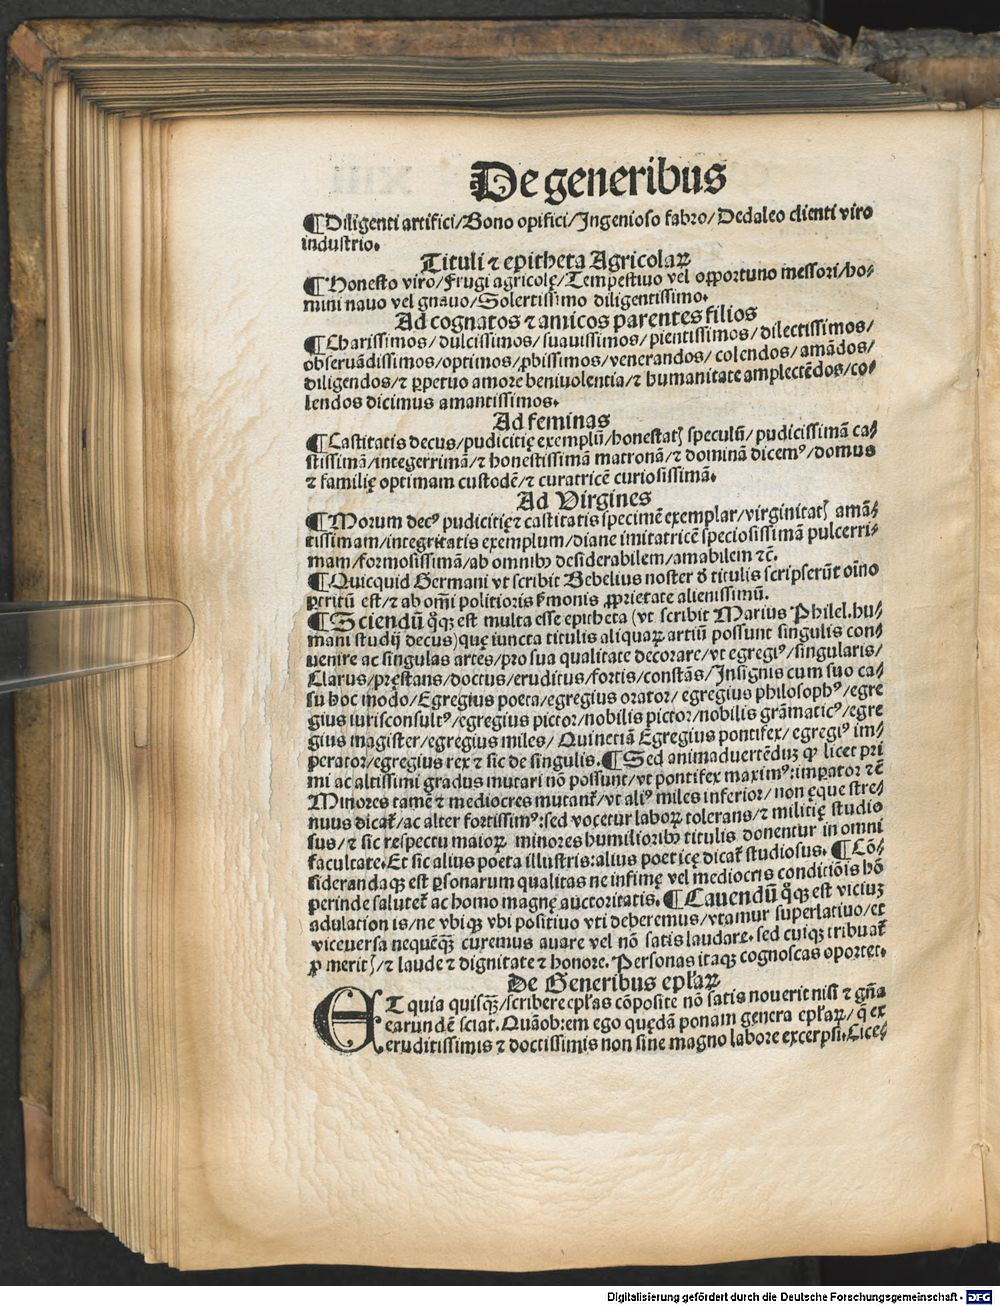 De generibus
¶Diligenti artifici/Bono opifici/Ingenioso fabro/Dedaleo clienti viro
industrio.
Tituli ⁊ epitheta Agricolaꝝ
¶Honesto viro/frugi agricolę/Tempestiuo vel opportuno messori/ho⸗
mini nauo vel gnauo/Solertissimo diligentissimo.
Ad cognatos ⁊ amicos parentes filios
¶Charissimos/dulcissimos/suauissimos/pientissimos/dilectissimos/
obseruādissimos/optimos/ꝓbissimos/venerandos/colendos/amādos/
diligendos/⁊ ꝑpetuo amore beniuolentia/⁊ humanitate amplectēdos/co⸗
lendos dicimus amantissimos.
Ad feminas
¶Castitatis decus/pudicitię exemplū/honestatꝭ speculū/pudicissimā ca⸗
stissimā/integerrimā/⁊ honestissimā matronā/⁊ dominā dicemꝰ/domus
⁊ familię optimam custodē/⁊ curatricē curiosissimā.
Ad Virgines
¶Morum decꝰ pudicitię⁊ castitatis specimē exemplar/virginitatꝭ amā⸗
tissimam/integritatis exemplum/diane imitatricē speciosissimā pulcerri⸗
mam/formosissimā/ab omnibꝰ desiderabilem/amabilem ⁊c̄.
¶Quicquid Germani vt scribit Bebelius noster ḋ titulis scripserūt oīno
ꝑritū est/⁊ ab om̄i politioris ẜmonis ꝓprietate alienissimū.
¶Sciendū qͦꝗꝫ est multa esse epitheta (vt scribit Marius Philel.hu⸗
mani studij decus)quę iuncta titulis aliquaꝝ artiū possunt singulis con⸗
uenire ac singulas artes/pro sua qualitate decorare/vt egregiꝰ/singularis/
Clarus/pręstans/doctus/eruditus/fortis/constās/Insignis cum suo ca⸗
su hoc modo/Egregius poeta/egregius orator/egregius philosophꝰ/egre
gius iurisconsultꝰ/egregius pictor/nobilis pictor/nobilis grāmaticꝰ/egre
gius magister/egregius miles/Quinetiā Egregius pontifex/egregiꝰ im⸗
perator/egregius rex ⁊ sic de singulis.¶Sed animaduertēduꝫ ꝙ licet pri
mi ac altissimi gradus mutari nō possunt/vt pontifex maximꝰ:imꝑator ⁊c̄
Minores tamē ⁊ mediocres mutant᷑/vt aliꝰ miles inferior/non ęque stre⸗
nuus dicat᷑/ac alter fortissimꝰ:sed vocetur laboꝝ tolerans/⁊ militię studio
sus/⁊ sic respectu maioꝝ minores humilioribꝰ titulis donentur in omni
facultate.Et sic alius poeta illustris:alius poeticę dicat᷑ studiosus.¶Cō⸗
siderandaqꝫ est ꝑsonarum qualitas ne infimę vel mediocris conditiōis hō
perinde salutet᷑ ac homo magnę auctoritatis.¶Cauendū qͦꝗꝫ est viciuꝫ
adulationis/ne vbiqꝫ vbi positiuo vti deberemus/vtamur superlatiuo/et
viceuersa nequēꝗ̈ꝫ curemus auare vel nō satis laudare.sed cuiqꝫ tribuat᷑
ꝓ meritꝭ/⁊ laude ⁊ dignitate ⁊ honore.Personas itaqꝫ cognoscas oportet.
De Generibus ep̄laꝝ
ET quia quisꝗ̈ꝫ/scribere ep̄las cōposite nō satis nouerit nisi ⁊ gn̄a
earundē sciat.Quāobrem ego quędā ponam genera ep̄laꝝ/q̄ ex
eruditissimis ⁊ doctissimis non sine magno labore excerpsi.Lice⸗
Digitalisierung gefördert durch die Deutsche Forschungsgemeinschaft - DFG